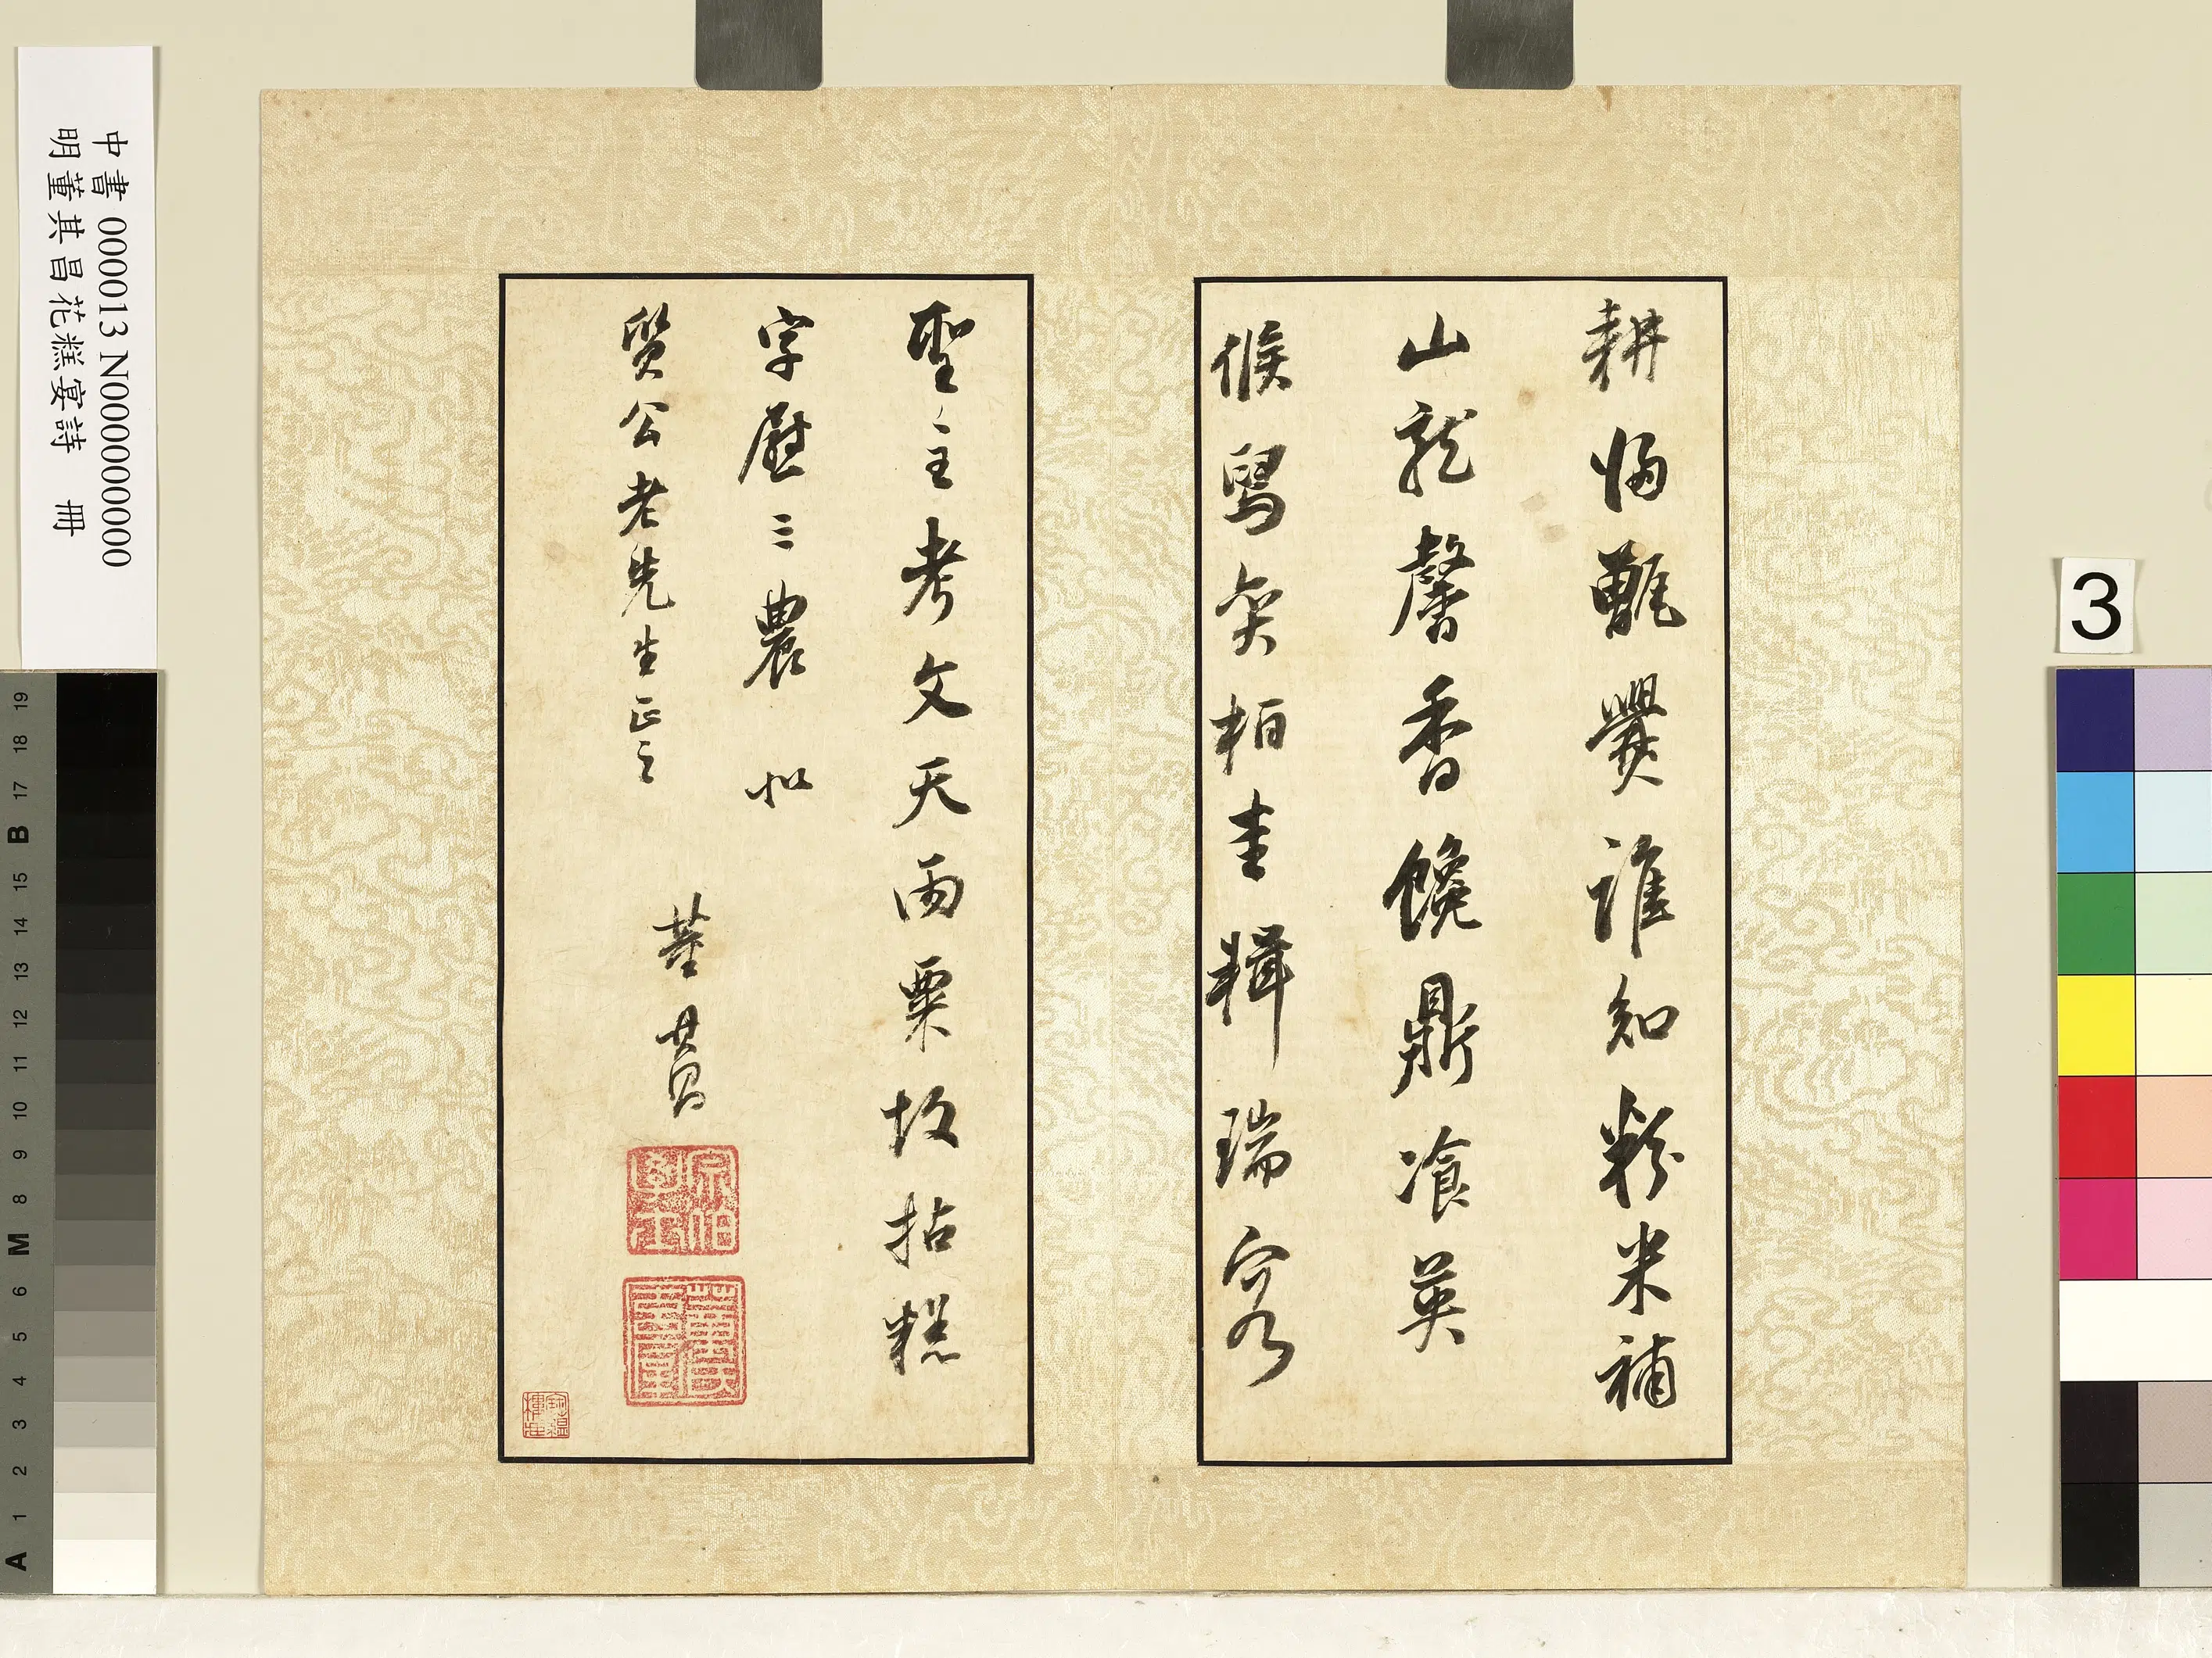 中書 000013 N000000000
明董其昌花糕宴詩 冊
3
耕㱕甑爨誰知粉米補
山龍馨香餕鼎飡英
候舄奕柏圭輯瑞容
聖主考文天雨粟故拈糕
字慰三農 似
賢公老先生正之
董其昌
宗伯學士
董氏玄宰
19
18
17
B
15
14
13
12
11
10
9
8
M
6
5
4
3
2
1
A